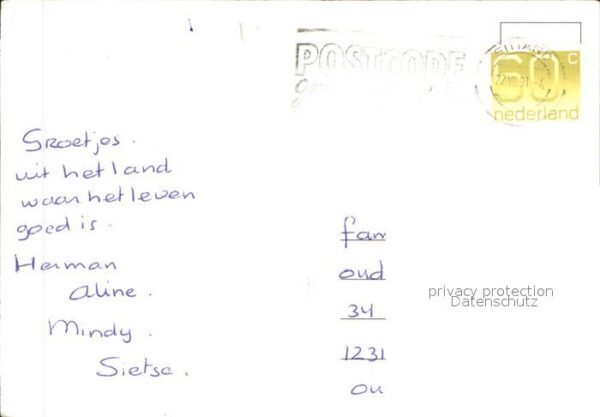 POSTCODE
SITTARD
60 c
nederland
Groetjes.
uit het land
waar het leven
goed is.
Herman
Aline.
Mindy.
Sietse.
fam
oud
34
1231
ou
privacy protection
Datenschutz